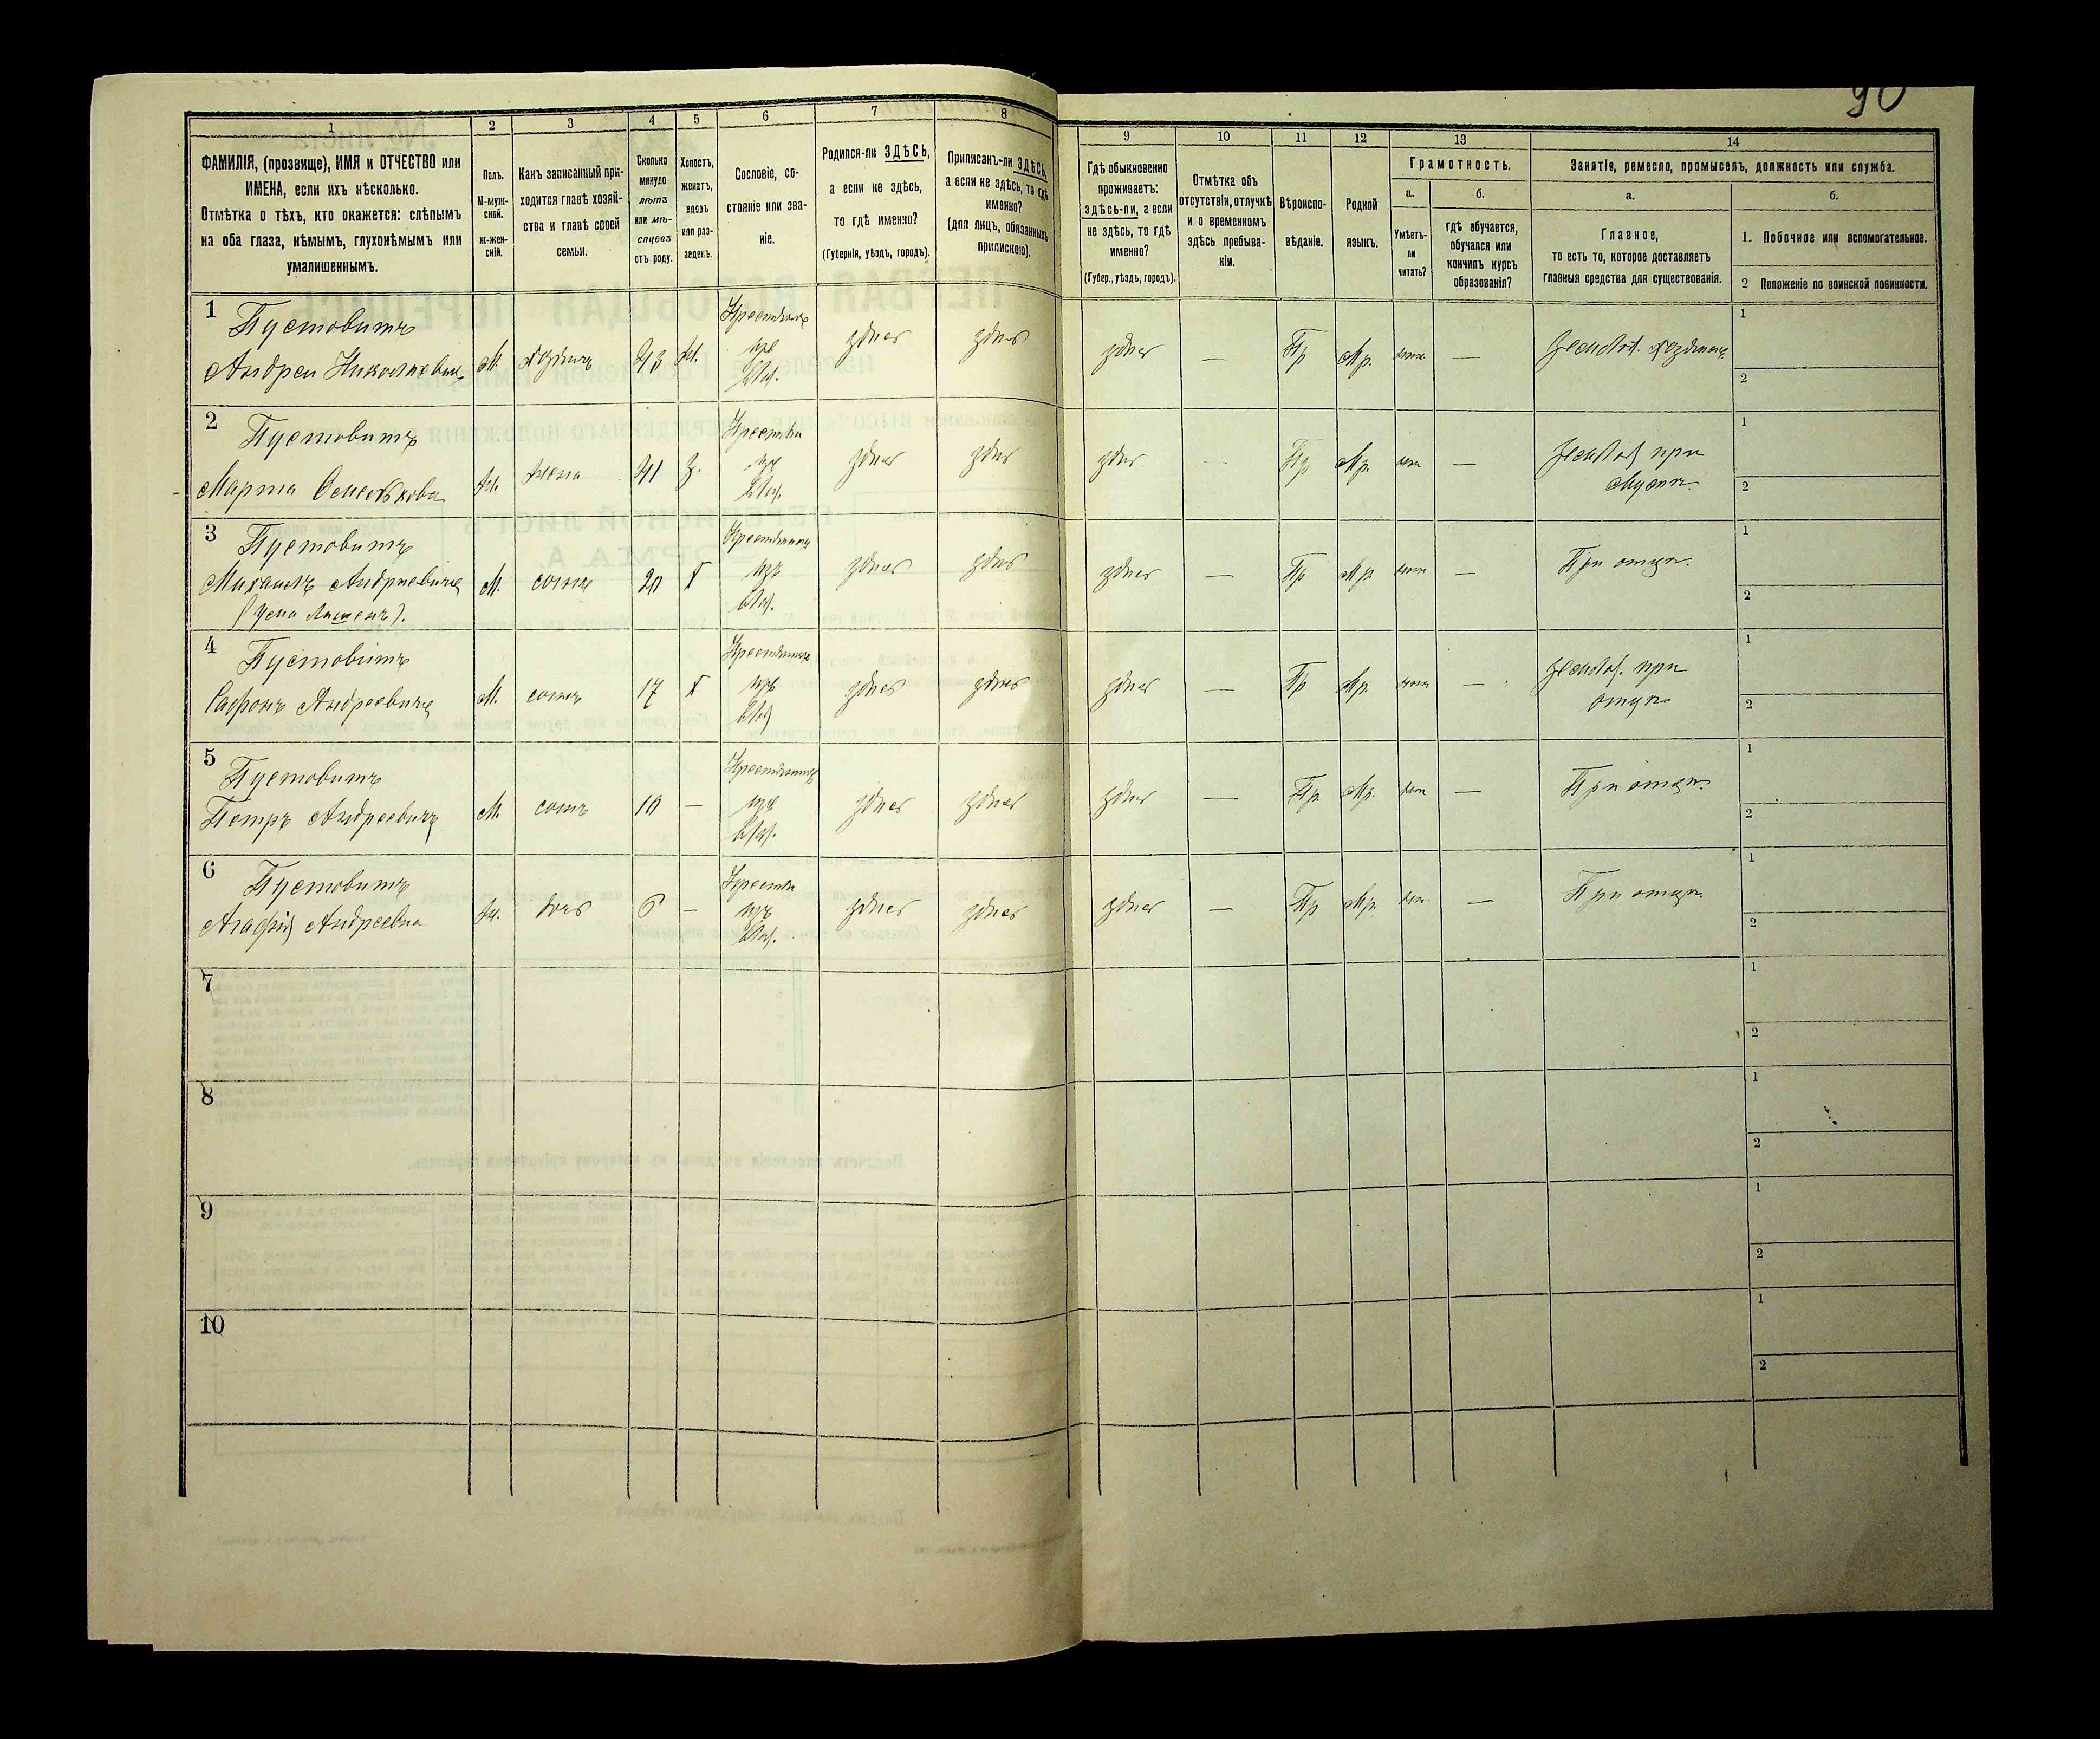 90
1
2
3
4
5
6
7
8
9
10
11
12
13
14
ФАМИЛІЯ, (прозвище), ИМЯ и ОТЧЕСТВО или
ИМЕНА, если ихъ нѣсколько.
Отмѣтка о тѣхъ, кто окажется: слѣпымъ
на оба глаза, нѣмымъ, глухонѣмымъ или
умалишеннымъ.
Полъ.
М-муж-
ской.
ж-жен-
скій.
Какъ записанный при-
ходится главѣ хозяй-
ства и главѣ своей
семьи.
Сколько
минуло
лѣтъ
или мѣ-
сяцевъ
отъ роду.
Холостъ,
женатъ,
вдовъ
или раз-
веденъ.
Сословіе, со-
стояніе или зва-
ніе.
Родился-ли ЗДѢСЬ,
а если не здѣсь,
то гдѣ именно?
(Губернія, уѣздъ, городъ).
Приписанъ-ли ЗДѢСЬ,
а если не здѣсь, то гдѣ
именно?
(для лицъ, обязанныхъ
припискою).
Гдѣ обыкновенно
проживаетъ:
здѣсь-ли, а если
не здѣсь, то гдѣ
именно?
(Губер., уѣздъ, городъ).
Отмѣтка объ
отсутствіи, отлучкѣ
и о временномъ
здѣсь пребыва-
ніи.
Вѣроиспо-
вѣданіе.
Родной
языкъ.
Грамотность.
а.
Умѣетъ-
ли
читать?
б.
гдѣ обучается,
обучался или
кончилъ курсъ
образованія?
Занятія, ремесло, промыселъ, должность или служба.
а.
Главное,
то есть то, которое доставляетъ
главныя средства для существованія.
б.
1. Побочное или вспомогательное.
2 Положеніе по воинской повинности.
1
Пустовитъ
Андрей Николаевичъ
М.
хозяинъ
43
Ж.
Крестьянинъ
изъ
влад.
здѣсь
здѣсь
здѣсь
—
Пр
Мр.
—
хозяинъ
1
2
2
Пустовитъ
Марта
Ж.
жена
41
З.
изъ
влад.
здѣсь
здѣсь
здѣсь
Пр.
Мр.
—
при
мужѣ.
1
2
3
Пустовитъ
Михаилъ Андреевичъ
М.
сынъ
20
Х
Крестьянинъ
изъ
влад.
здѣсь
здѣсь
здѣсь
—
Пр
Мр.
—
При отцѣ.
1
2
4
Пустовитъ
Сафонъ Андреевичъ
М.
сынъ
17
Х
Крестьянинъ
изъ
влад
здѣсь
здѣсь
здѣсь
—
Пр
Мр.
—
при
отцѣ
1
2
5
Пустовитъ
Петръ Андреевичъ
М.
сынъ
10
—
Крестьянинъ
изъ
влад.
здѣсь
здѣсь
здѣсь
—
Пр.
Мр.
—
При отцѣ.
1
2
6
Пустовитъ
Агафія Андреевна
Ж.
дочь
6
—
изъ
влад.
здѣсь
здѣсь
здѣсь
—
Пр
Мр.
—
При отцѣ.
1
2
7
1
2
8
1
2
9
1
2
10
1
2